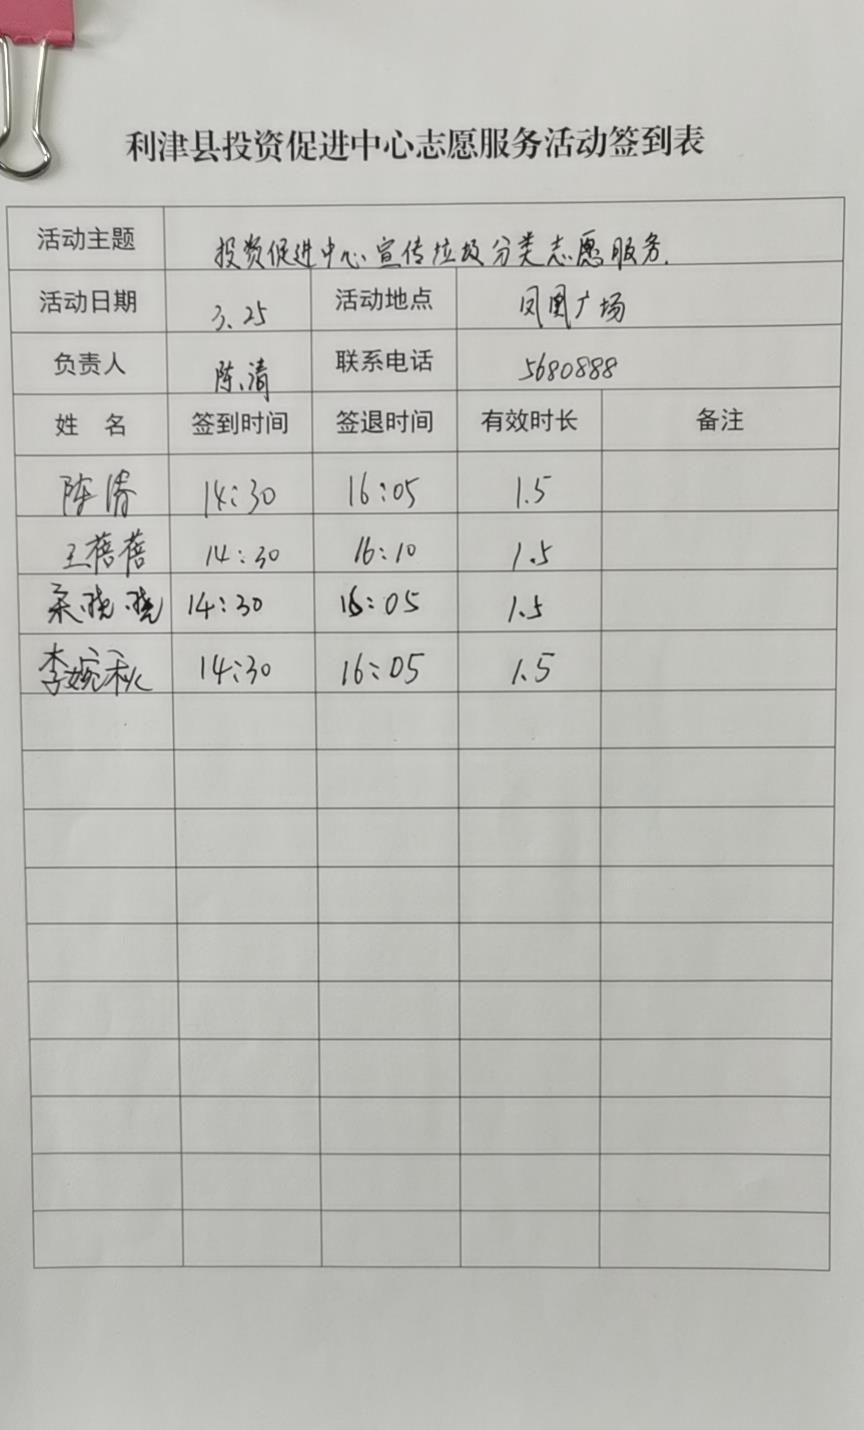 利津县投资促进中心志愿服务活动签到表
活动主题 投资促进中心宣传垃圾分类志愿服务.
活动日期 3.25 活动地点 凤凰广场
负责人 陈清 联系电话 5680888
姓 名 签到时间 签退时间 有效时长 备注
陈清 14:30 16:05 1.5
王蓓蓓 14:30 16:10 1.5
晓晓 14:30 16:05 1.5
李婉秋 14:30 16:05 1.5